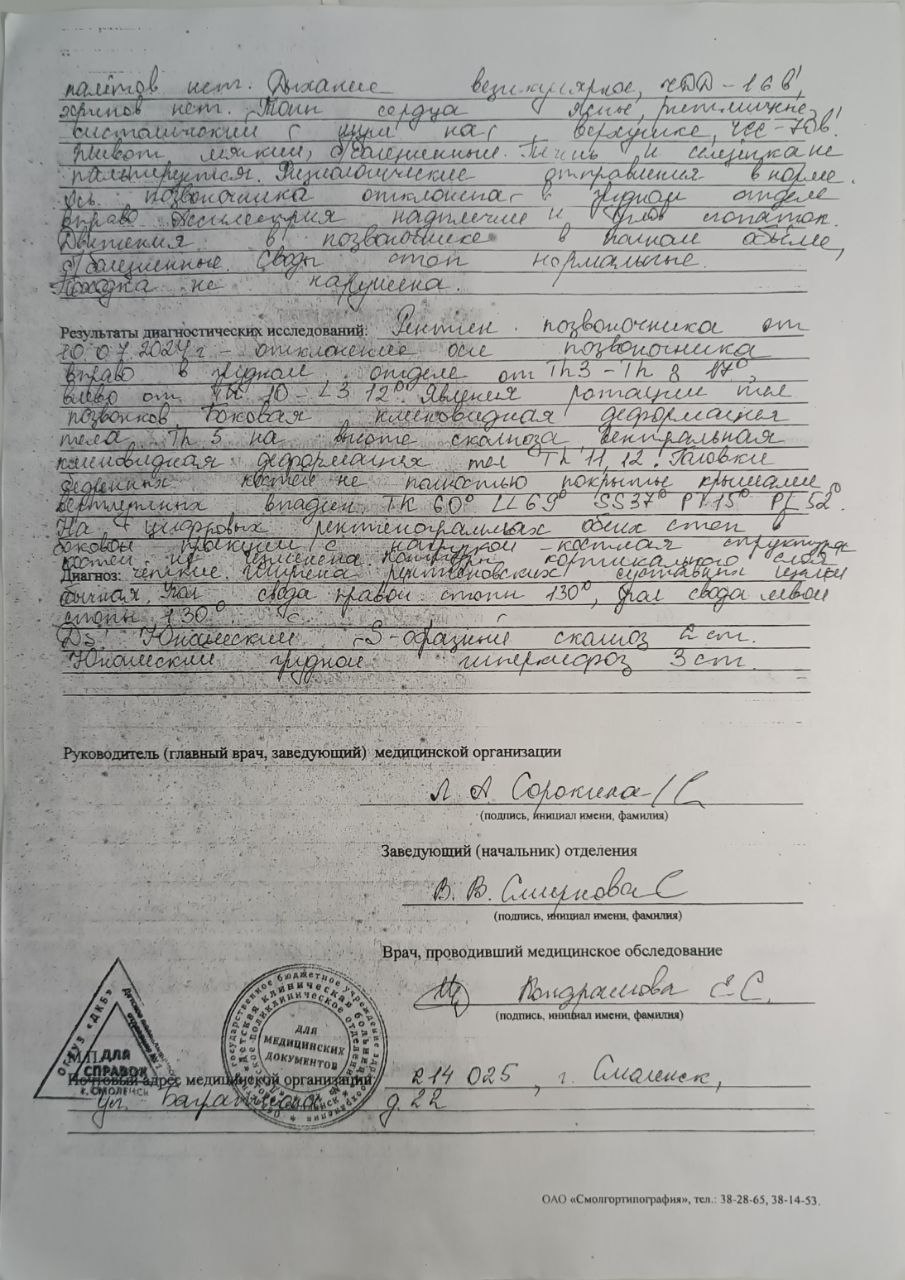 налётов нет. Дыхание везикулярное, ЧДД - 16 в',
хрипов нет. Тоны сердца ясные, ритмичные,
систолический шум на верхушке, ЧСС - 78 в'.
Живот мягкий, б/болезненный. Печень и селезёнка не
пальпируются. Физиологические отправления в норме.
Ось позвоночника отклонена в грудном отделе
вправо. Ассиметрия надплечий и углов лопаток.
Движения в позвоночнике в полном объёме,
б/болезненные. Своды стоп нормальные.
Походка не нарушена.
Результаты диагностических исследований: Рентген. позвоночника от
10.07.2024 г - отклонение оси позвоночника
вправо в грудном отделе от Th3 - Th 8 17°,
влево от Th 10 - L3 12°. Явления ротации тел
позвонков, боковая клиновидная деформация
тела Th 5 на высоте сколиоза, вентральная
клиновидная деформация тел Th 11, 12. Головки
бедренных костей не полностью покрыты крышами
вертлужных впадин. ТК 60° LL 69° SS 37° PT 15° PI 52°
На 4 цифровых рентгенограммах обеих стоп в
боковой проекции с нагрузкой - костная структура
костей не изменена. Контуры кортикального слоя
Диагноз: чёткие. Ширина рентгеновских суставных щелей
обычная. Угол свода правой стопы 130°, угол свода левой
стопы 130°
Ds: Юношеский S-образный сколиоз 2 ст.
Юношеский грудной гиперкифоз 3 ст.
Руководитель (главный врач, заведующий) медицинской организации
Л. А. Сорокина
(подпись, инициал имени, фамилия)
Заведующий (начальник) отделения
В. В. Смирнова
(подпись, инициал имени, фамилия)
Врач, проводивший медицинское обследование
Кондрашова Е.С.
(подпись, инициал имени, фамилия)
ОГБУЗ «ДКБ»
ДЛЯ СПРАВОК
г. СМОЛЕНСК
ДЛЯ
МЕДИЦИНСКИХ
ДОКУМЕНТОВ
М.П.
Почтовый адрес медицинской организации 214 025, г. Смоленск,
ул. д. 22
ОАО «Смолгортипография», тел.: 38-28-65, 38-14-53.